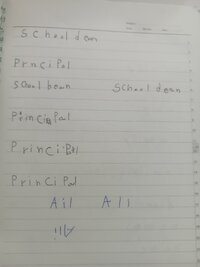 School dean
Prncipal
School bean School dean
Principal
Principal
Principal
Ail All